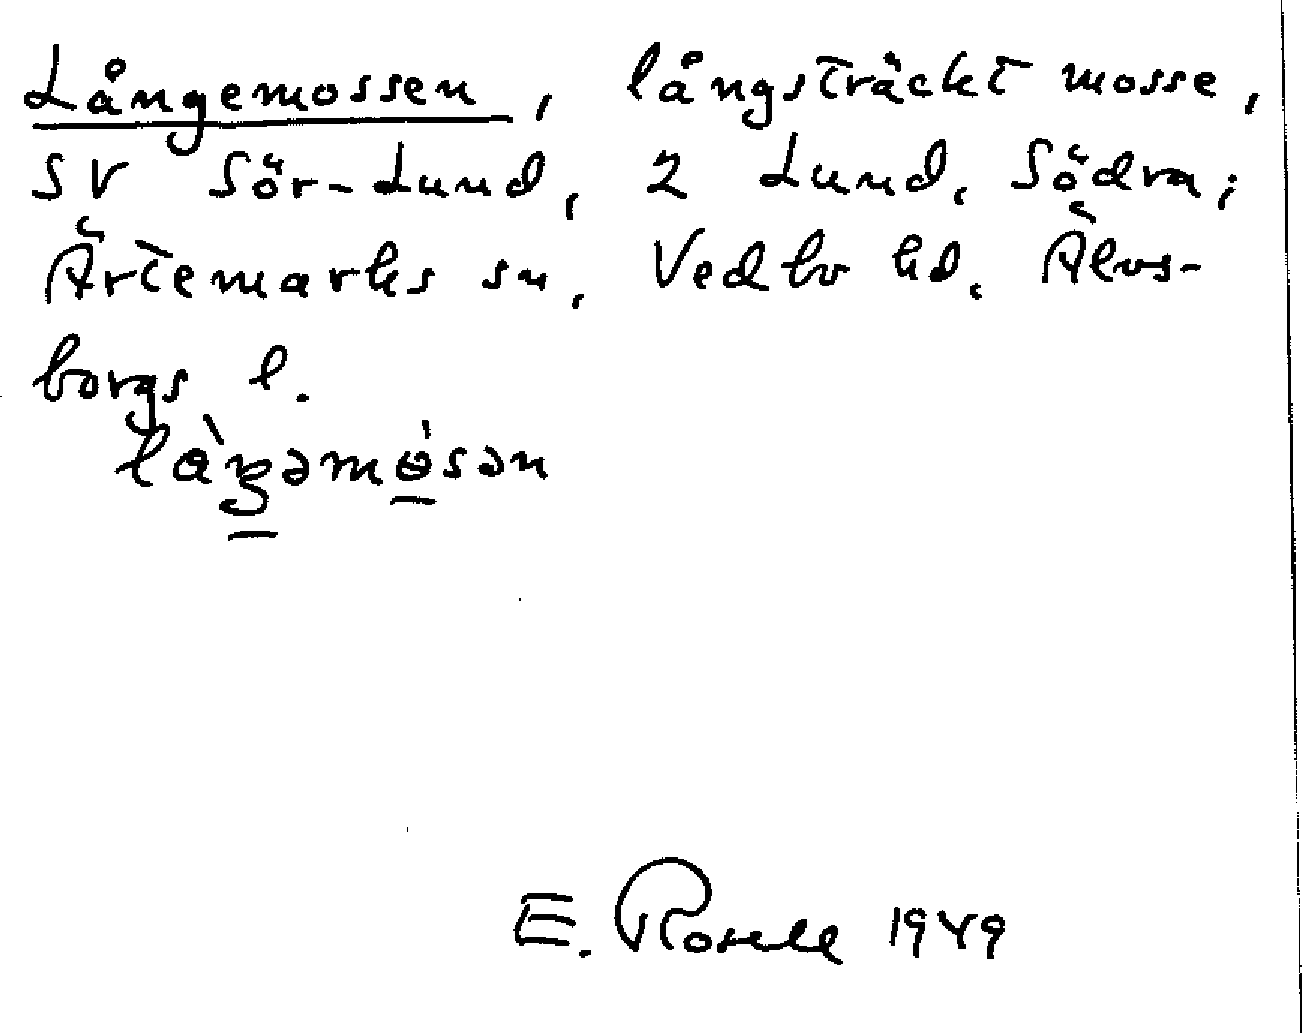 Långemossen, långsträckt mosse,
SV Sör-Lund, 2 Lund, Södra;
Ärtemarks sn, Vedbo hd, Älvs-
borgs l.
là̱ŋəmɵ̱̀sən
E. Rosell 1949